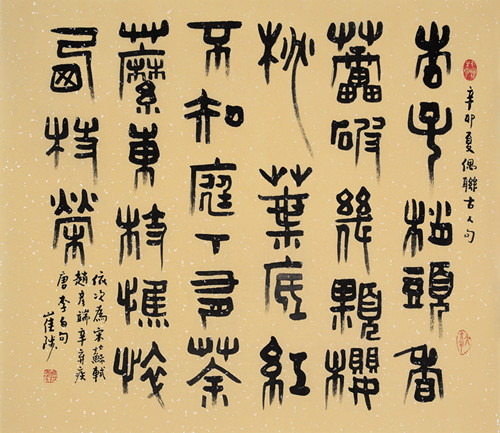 辛卯夏偶聯古人句
杏子梢頭香
蕾破幾顆櫻
桃葉底紅
不知庭下有荼
蘼東枝憔悴
西枝榮
依次爲宋蘇軾
趙彥端辛弃疾
唐李白句
崔陟